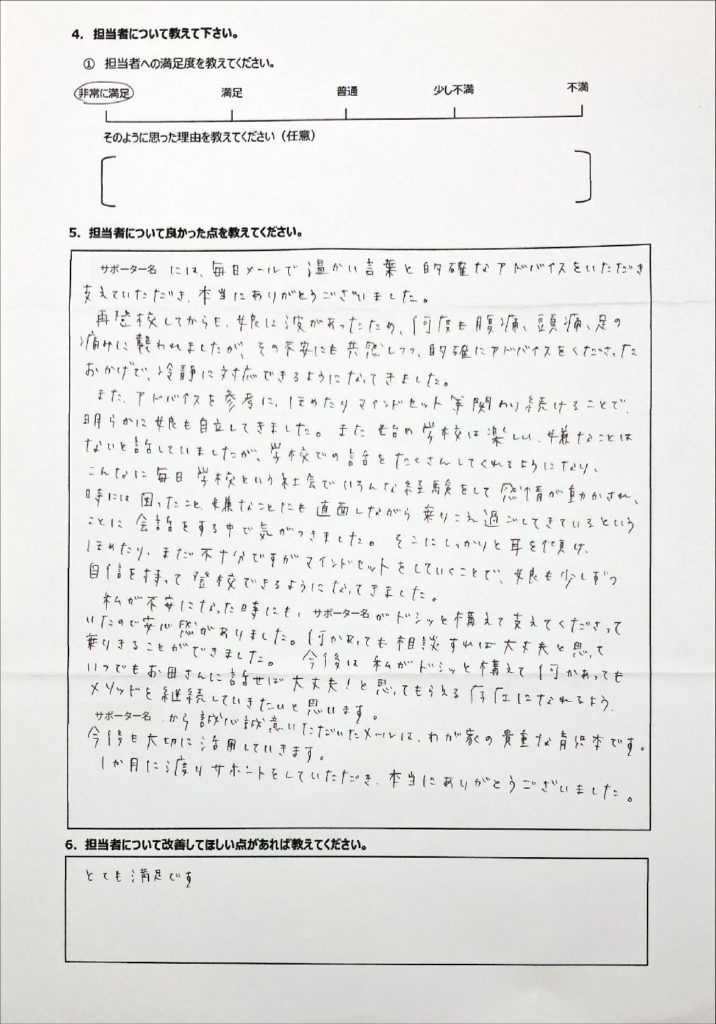 4．担当者について教えて下さい。
① 担当者への満足度を教えてください。
非常に満足 満足 普通 少し不満 不満
そのように思った理由を教えてください（任意）
5．担当者について良かった点を教えてください。
サポーター名 には、毎日メールで温かい言葉と的確なアドバイスをいただき
支えていただき、本当にありがとうございました。
再登校してからも、娘に波があったため、何度も腹痛、頭痛、足の
痛みに襲われましたが、その不安にも共感しつつ、的確にアドバイスをくださった
おかげで、冷静に対応できるようになってきました。
また、アドバイスを参考に、ほめたりマインドセット等関わり続けることで、
明らかに娘も自立してきました。また 始めは学校は楽しい、嫌なことは
ないと話していましたが、学校での話をたくさんしてくれるようになり、
こんなに毎日 学校という社会でいろんな経験をして 感情が動かされ、
時には困ったこと、嫌なことにも直面しながら乗りこえ過ごしてきているという
ことに 会話をする中で気がつきました。そこにしっかりと耳を傾け、
ほめたり、まだ不十分ですがマインドセットをしていくことで、娘も少しずつ
自信を持って登校できるようになってきました。
私が不安になった時にも、サポーター名 がドシッと構えて支えてくださって
いたので安心感がありました。何かあっても相談すれば大丈夫と思って
乗りきることができました。 今後は私がドシッと構えて何かあっても
いつでもお母さんに話せば大丈夫！と思ってもらえる存在になれるよう、
メソッドを継続していきたいと思います。
サポーター名 から誠心誠意いただいたメールは、わが家の貴重な育児本です。
今後も大切に活用していきます。
1か月にわたりサポートをしていただき、本当にありがとうございました。
6．担当者について改善してほしい点があれば教えてください。
とても満足です